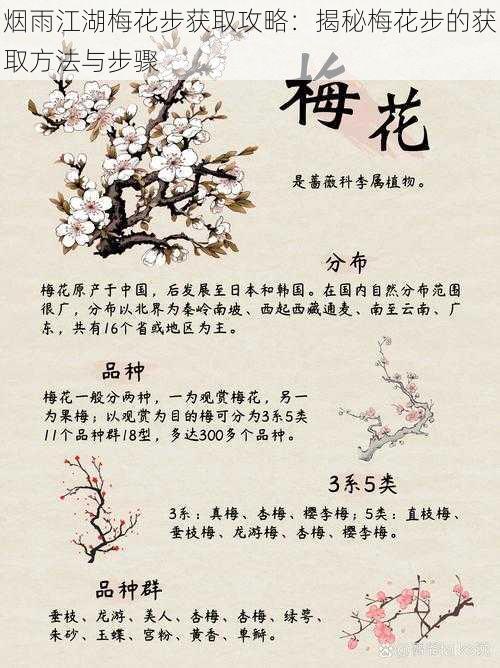 烟雨江湖梅花步获取攻略：揭秘梅花步的获
取方法与步骤
梅花
是蔷薇科李属植物。
分布
梅花原产于中国，后发展至日本和韩国。在国内自然分布范围
很广，分布以北界为秦岭南坡、西起西藏通麦、南至云南、广
东，共有16个省或地区为主。
品种
梅花一般分两种，一为观赏梅花，另一
为果梅；以观赏为目的梅可分为3系5类
11个品种群18型，多达300多个品种。
3系5类
3系：真梅、杏梅、樱李梅；5类：直枝梅、
垂枝梅、龙游梅、杏梅、樱李梅。
品种群
垂枝、龙游、美人、杏梅、杏梅、绿萼、
朱砂、玉蝶、宫粉、黄香、单瓣。